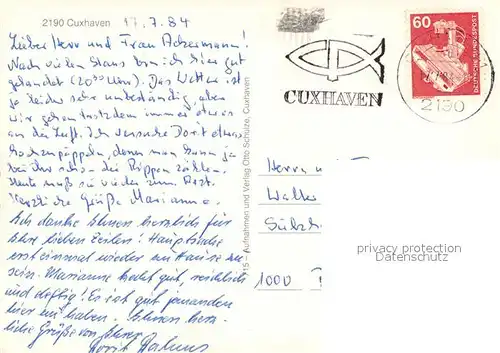 2190 Cuxhaven 17.7.84
Lieber Herr und Frau Ackermann!
Nach vielen Staus bin ich hier gut
gelandet (20⁰⁰ Uhr). Das Wetter ist
ja leider sehr unbeständig, aber
wir gehen trotzdem immer etwas
an die Luft. Ich versuche Dorit etwas
hochzupäppeln, denn man kann ja
bei ihr schon die Rippen zählen.
Heute muß sie wieder zum Arzt.
Herzliche Grüße Marianne.
Ich danke Ihnen herzlich für
Ihre lieben Zeilen! Hauptsache
erst einmal wieder im Hause zu
sein. Marianne kocht gut, reichlich
und deftig! Es ist gut jemanden
hier zu haben. Ihnen herz-
liche Grüße von Ihrer
Dorit
15 - Aufnahmen und Verlag Otto Schütze, Cuxhaven
CUXHAVEN
60
DEUTSCHE BUNDESPOST
2190
Herrn u
Walte
Sülzh
1000
copyright protection
www.Ansichtskartenversand.com